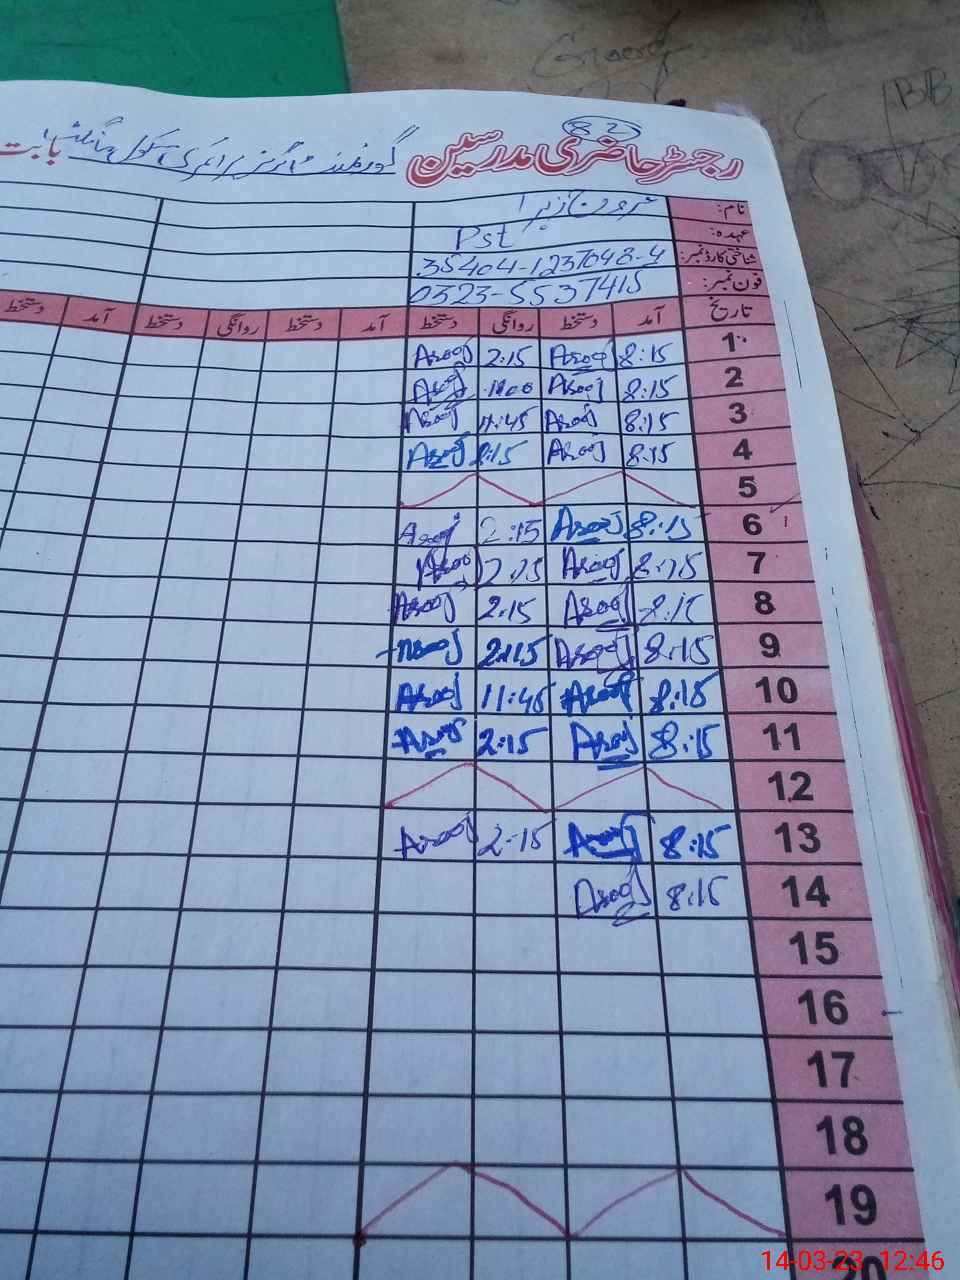 82
رجسٹر حاضری مدرسین گورنمنٹ گرلز پرائمری سکول بابت
نام:
عہدہ: Pst
شناختی کارڈ نمبر: 35404-1237048-4
فون نمبر: 0323-5537415
تاریخ آمد دستخط روانگی دستخط آمد دستخط روانگی دستخط آمد دستخط
1 8:15 Asooj 2:15 Asooj
2 8:15 Asooj 11:00 Asooj
3 8:15 Asooj 11:45 Asooj
4 8:15 Asooj 2:15 Asooj
5
6 8:15 Asooj 2:15 Asooj
7 8:15 Asooj 2:15 Asooj
8 8:15 Asooj 2:15 Asooj
9 8:15 Asooj 2:15 Asooj
10 8:15 Asooj 11:45 Asooj
11 8:15 Asooj 2:15 Asooj
12
13 8:15 Asooj 2:15 Asooj
14 8:15 Asooj
15
16
17
18
19
20
BB
14-03-23 12:46